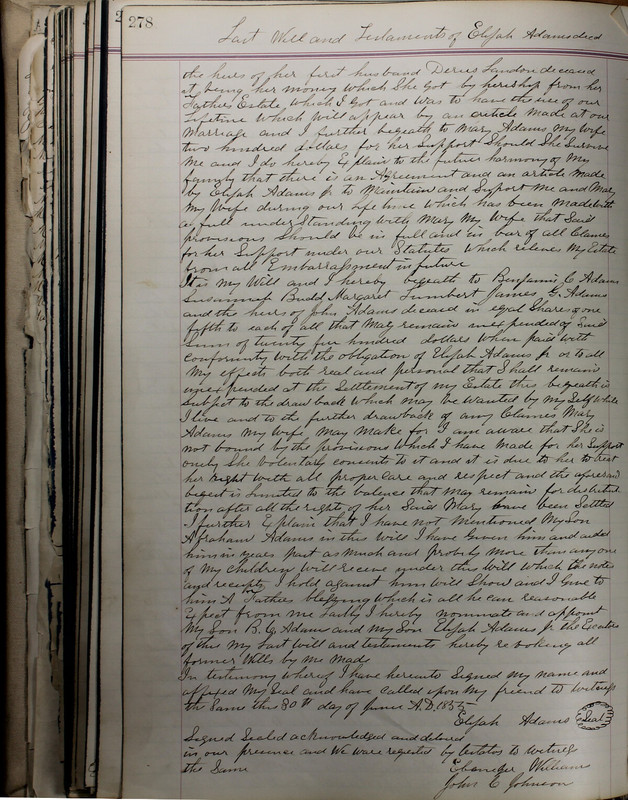 278
Last Will and Testaments of Elijah Adams decd
the heirs of her first husband Derius Landon deceased
it being her money which She got by heirship from her
Fathers Estate, which I got and was to have the use of our
lifetime which will appear by an article made at our
Marriage and I further begeath to Mary Adams My Wife
two hundred dollars for her Support Should She Survive
Me and I do hereby Explain to the future harmony of My
family that there is an Agreement and an article Made
by Elijah Adams Jr to Maintain and Support Me and Mary
My Wife during our life time which has been Made with
a full understanding with Mary My Wife that Said
provisions Should be in full and in bar of all Claims
for her Support under our Statutes which relieves My Estate
from all Embarrassment in future
It is My Will and I hereby begeath to Benjamin C Adams
Budd Margaret Lumbert James G. Adams
and the heirs of John Adams deceased in egal Shares one
fifth to each of all that May remain unexpended of Said
Sum of twenty five hundred dollars When paid with
Conformity with the obligation of Elijah Adams Jr or to all
My effects both real and personal that Shall remain
unexpended at the Settlement of my Estate this begeath is
Subject to the draw back which may be wanted by My Self while
I live and to the further drawback of any Claimes Mary
Adams My Wife May Make for I am aware that She is
not bound by the provisions which I have made for her Support
only She volentarly consents to it and it is due to her to treat
her right with all proper Care and respect and the aforesaid
begest is Limited to the balence that may remain for distribu-
tion after all the rights of her Said Mary have been Settled
I further Explain that I have not Mentioned My Son
Abraham Adams in this Will I have Given him and aided
him in years past as much and probely more than any one
of My Children Will receive under this Will which the notes
and receipts I hold against him Will Show and I Give to
him A Fathers blessing which is all he can reasonable
Expect from me Lastly I hereby nominate and appoint
My Son B. C. Adams and my Son Elijah Adams Jr the
of this My Last Will and testaments hereby revoking all
former Wills by me Made
In testimony whereof I have hereunto Signed my name and
affixed My Seal and have Called upon My friend to Witness
the Same this 30th day of June A.D. 1855
Elijah Adams Seal
Signed Sealed acknowledged and
in our presence and We were by testator to witness
the Same
Ebenezer Williams
John E Johnson